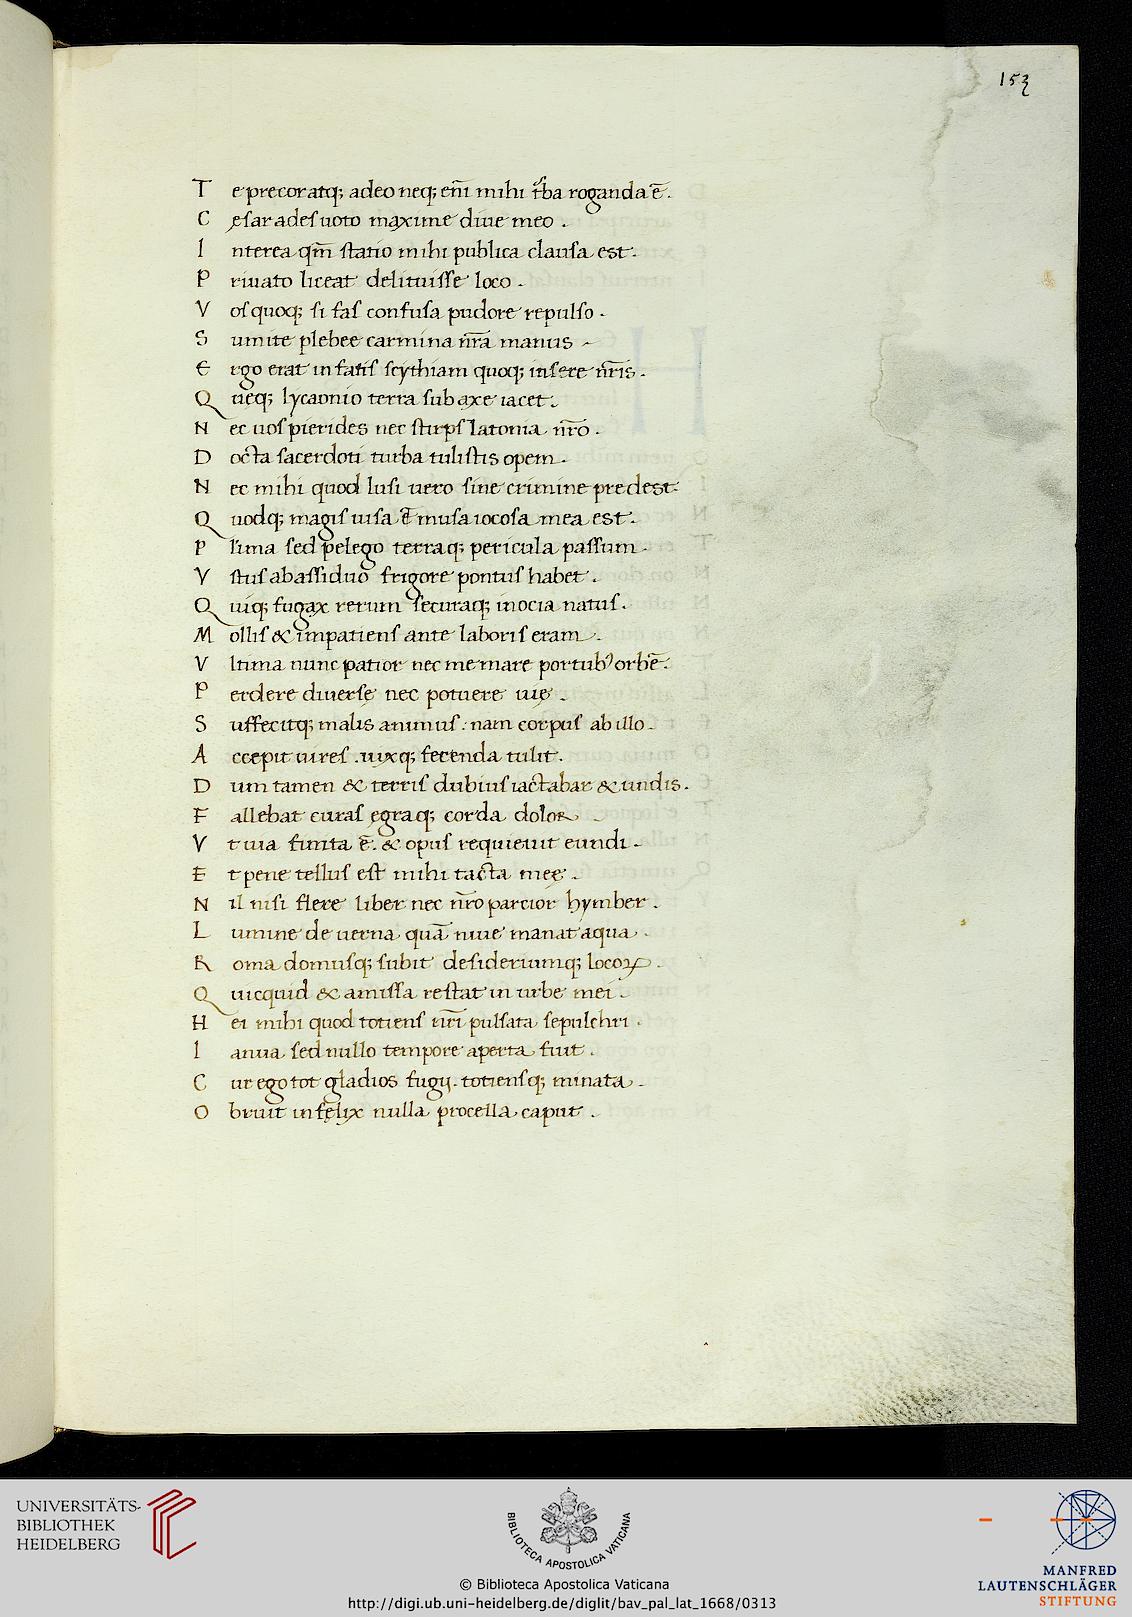 153
T e precor atq; adeo neq; em̄ mihi t͛ba roganda ē.
C ęsar ades uoto maxime diue meo.
I nterea qm̄ statio mihi publica clausa est.
P riuato liceat delituisse loco.
V os quoq; si fas confusa pudore repulso.
S umite plebee carmina nr̄a manus
E rgo erat in fatis scythiam quoq; insere nr̄is.
Q ueq; lycaonio terra sub axe iacet.
N ec uos pierides nec stirps latonia nr̄o.
D octa sacerdoti turba tulistis opem.
N ec mihi quod lusi uero sine crimine predest.
Q uodq; magis uisa ē musa iocosa mea est.
P lima sed pelego terraq; pericula passum.
V stus ab assiduo frigore pontus habet.
Q uiq; fugax rerum securaq; in ocia natus.
M ollis & impatiens ante laboris eram.
V ltima nunc patior nec me mare portub' orbē.
P erdere diuersę nec potuere uię.
S uffecitq; malis animus. nam corpus ab illo.
A ccepit uires. uixq; fecenda tulit.
D um tamen & terris dubius iactabar & undis.
F allebat curas ęgraq; corda dolor
V t uia finita ē. & opus requieuit eundi.
E t pene tellus est mihi tacta meę.
N il nisi flere liber nec nr̄o parcior hymber.
L umine de uerna quā niue manat aqua.
R oma domusq; subit desideriumq; locoꝝ.
Q uicquid & amissa restat in urbe mei.
H ei mihi quod totiens nr̄i pulsata sepulchri.
I anua sed nullo tempore aperta fuit.
C ur ego tot gladios fugij. totiensq; minata.
O bruit infęlix nulla procella caput.
UNIVERSITÄTS-
BIBLIOTHEK
HEIDELBERG
BIBLIOTECA APOSTOLICA VATICANA
MANFRED
LAUTENSCHLÄGER
STIFTUNG
© Biblioteca Apostolica Vaticana
http://digi.ub.uni-heidelberg.de/diglit/bav_pal_lat_1668/0313